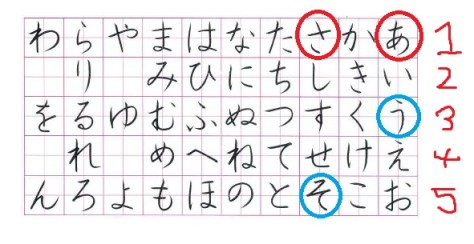 わ ら や ま は な た さ か あ 1
り み ひ に ち し き い 2
を る ゆ む ふ ぬ つ す く う 3
れ め へ ね て せ け え 4
ん ろ よ も ほ の と そ こ お 5